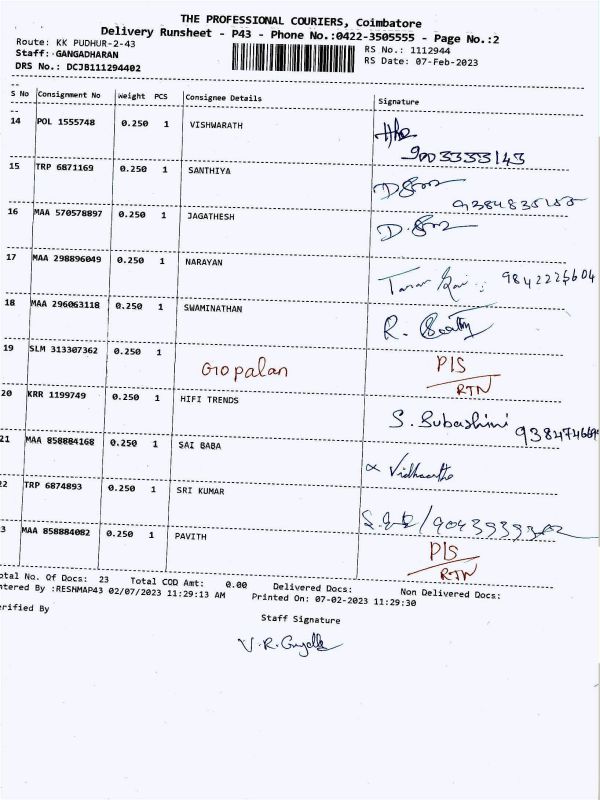 THE PROFESSIONAL COURIERS, Coimbatore
Delivery Runsheet - P43 - Phone No.:0422-3505555 - Page No.:2
Route: KK PUDHUR-2-43 RS No.: 1112944
Staff: GANGADHARAN RS Date: 07-Feb-2023
DRS No.: DCJB111294402
S No Consignment No Weight PCS Consignee Details Signature
14 POL 1555748 0.250 1 VISHWARATH
9003333143
15 TRP 6871169 0.250 1 SANTHIYA
16 MAA 570578897 0.250 1 JAGATHESH
17 MAA 298896049 0.250 1 NARAYAN
18 MAA 296063118 0.250 1 SWAMINATHAN
R.
19 SLM 313307362 0.250 1 Gopalan PIS
RTN
20 KRR 1199749 0.250 1 HIFI TRENDS
S. Subashini
21 MAA 858884168 0.250 1 SAI BABA
22 TRP 6874893 0.250 1 SRI KUMAR
3 MAA 858884082 0.250 1 PAVITH
PIS
RTN
otal No. Of Docs: 23 Total COD Amt: 0.00 Delivered Docs: Non Delivered Docs:
ntered By :RESHMAP43 02/07/2023 11:29:13 AM Printed On: 07-02-2023 11:29:30
erified By
Staff Signature
V.R.